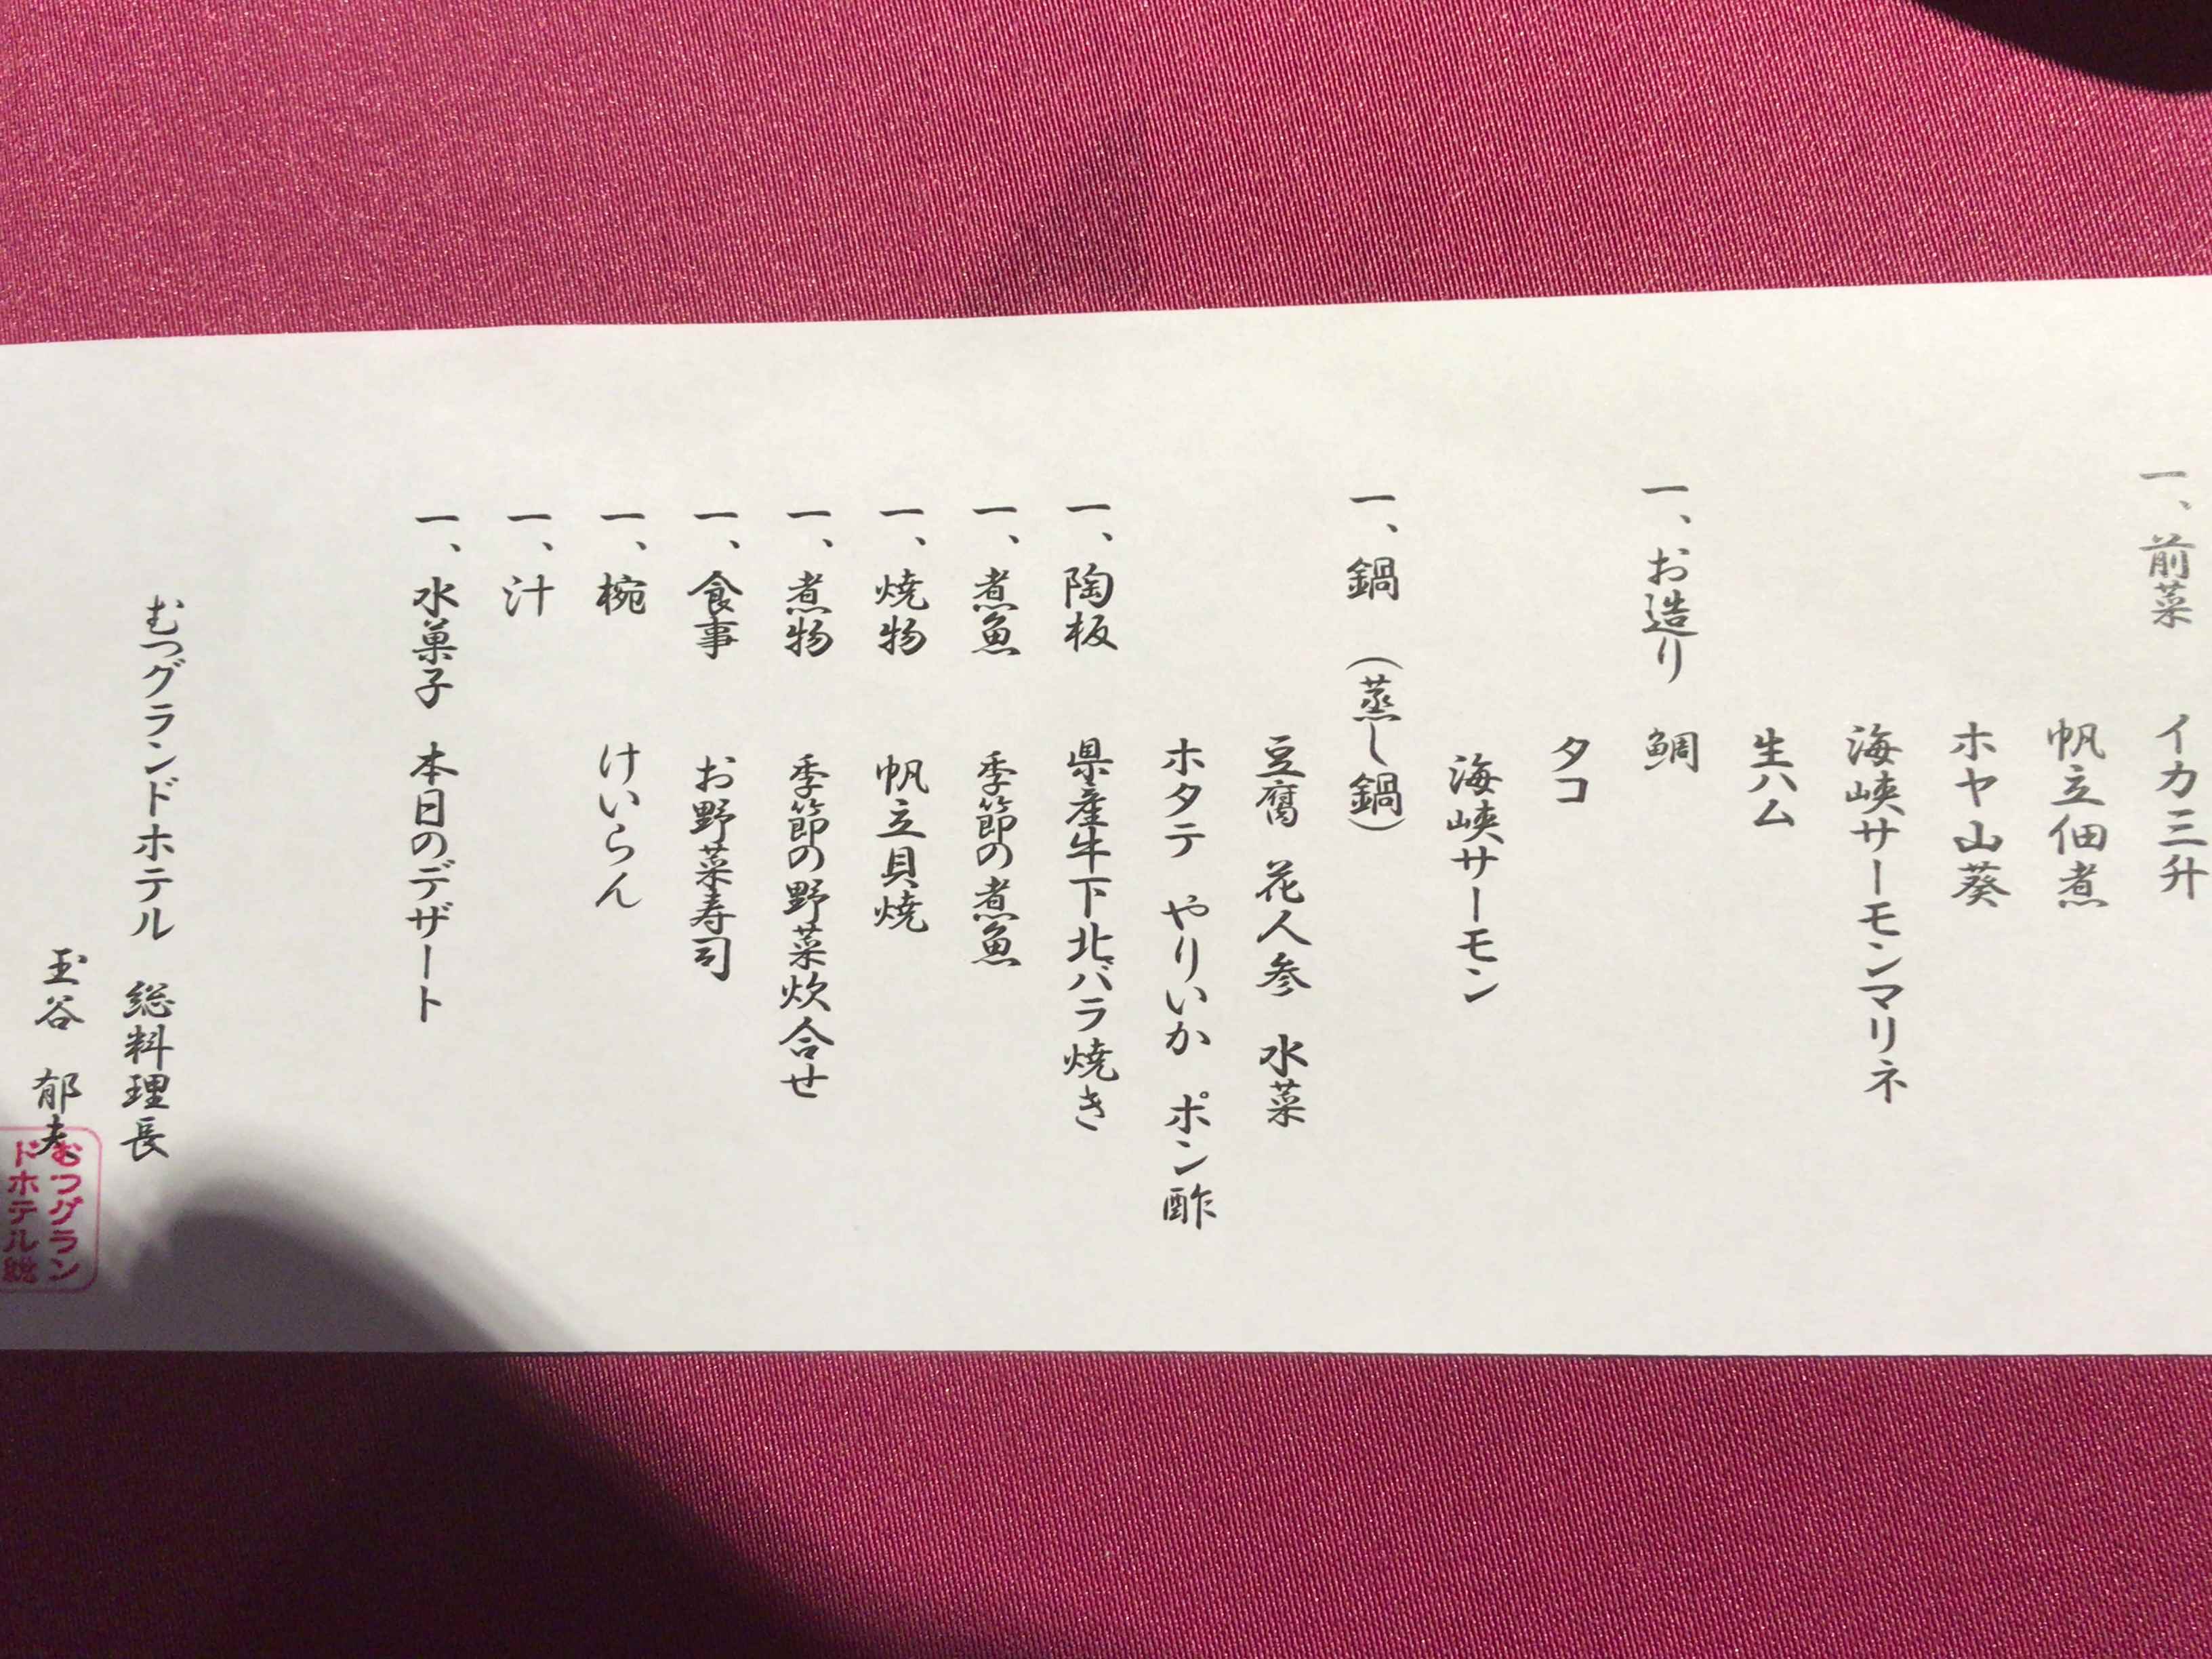 一、前菜　イカ三升
帆立佃煮
ホヤ山葵
海峡サーモンマリネ
生ハム
一、お造り　鯛
タコ
海峡サーモン
一、鍋　（蒸し鍋）
豆腐　花人参　水菜
ホタテ　やりいか　ポン酢
一、陶板　県産牛下北バラ焼き
一、煮魚　季節の煮魚
一、焼物　帆立貝焼
一、煮物　季節の野菜炊合せ
一、食事　お野菜寿司
一、椀　けいらん
一、汁
一、水菓子　本日のデザート
むつグランドホテル　総料理長
玉谷　郁夫
むつグラン
ドホテル総